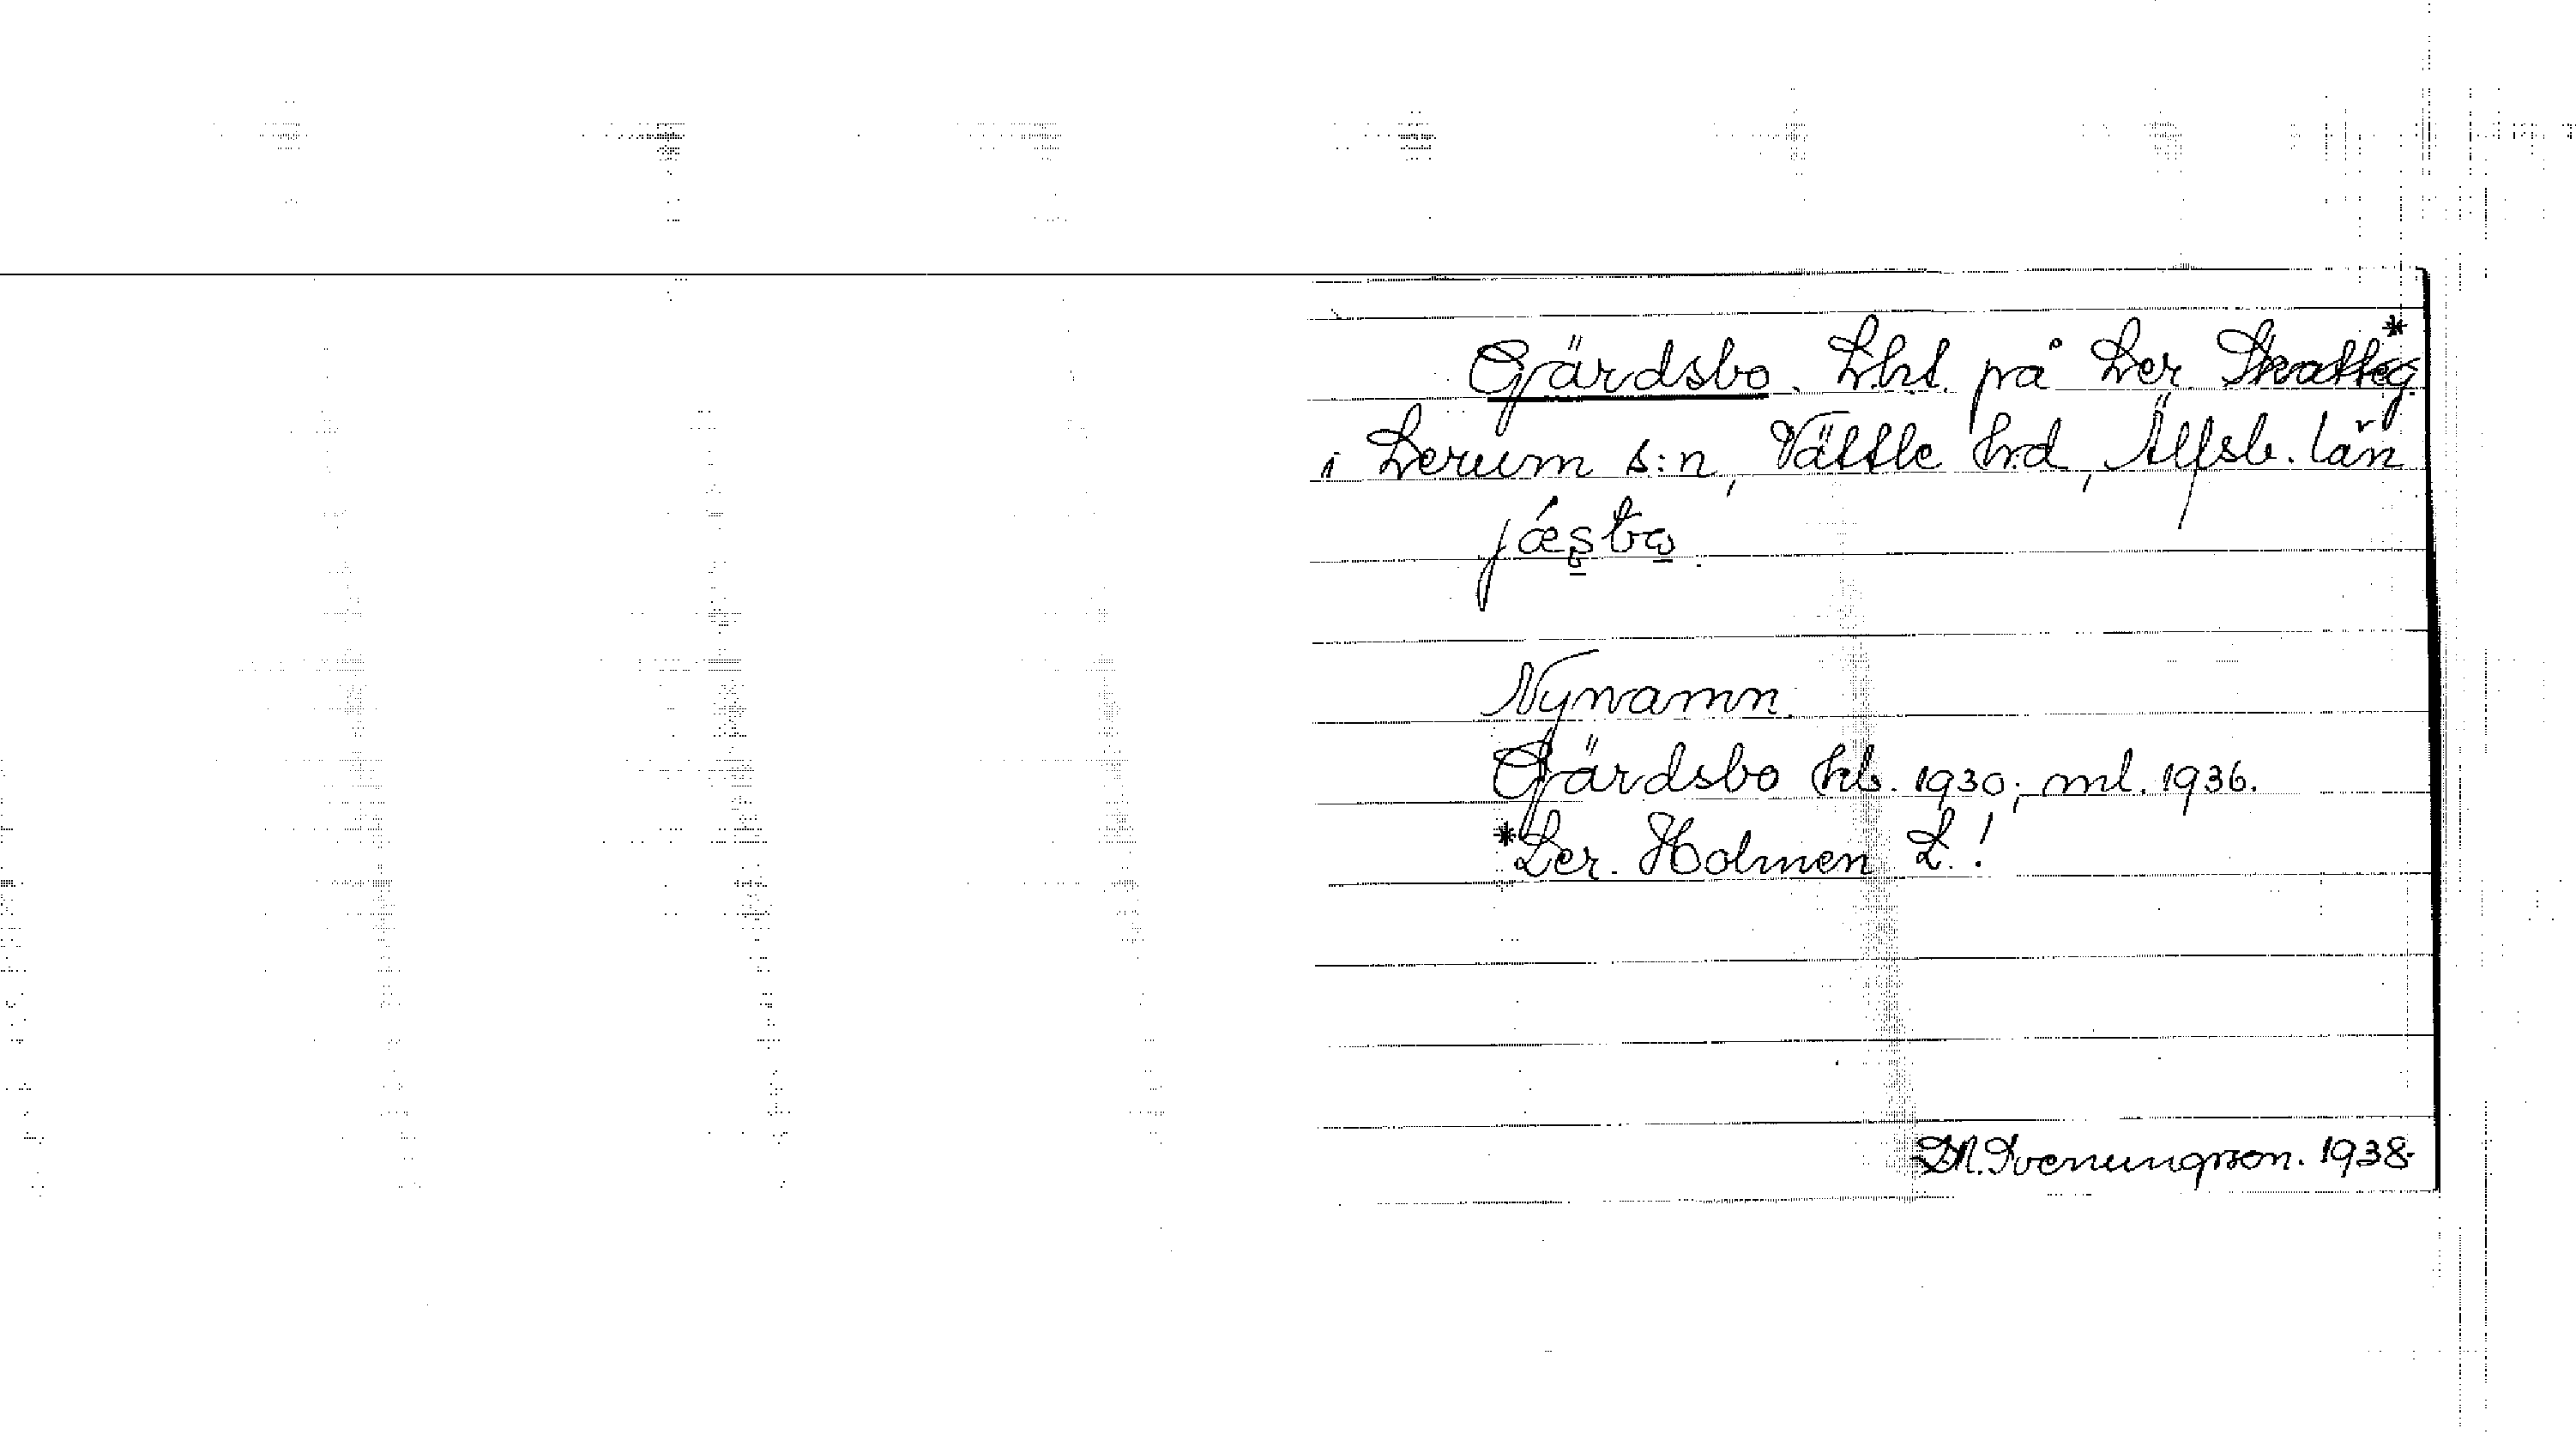 Gärdsbo. Lht. på Ler. Skatteg.*
i Lerum s:n, Vättle hd, Älfsb. län
jǽsbω
Nynamn.
Gärdsbo kb. 1930; ml. 1936.
*Ler. Holmen L.!
M. Svenungson. 1938.